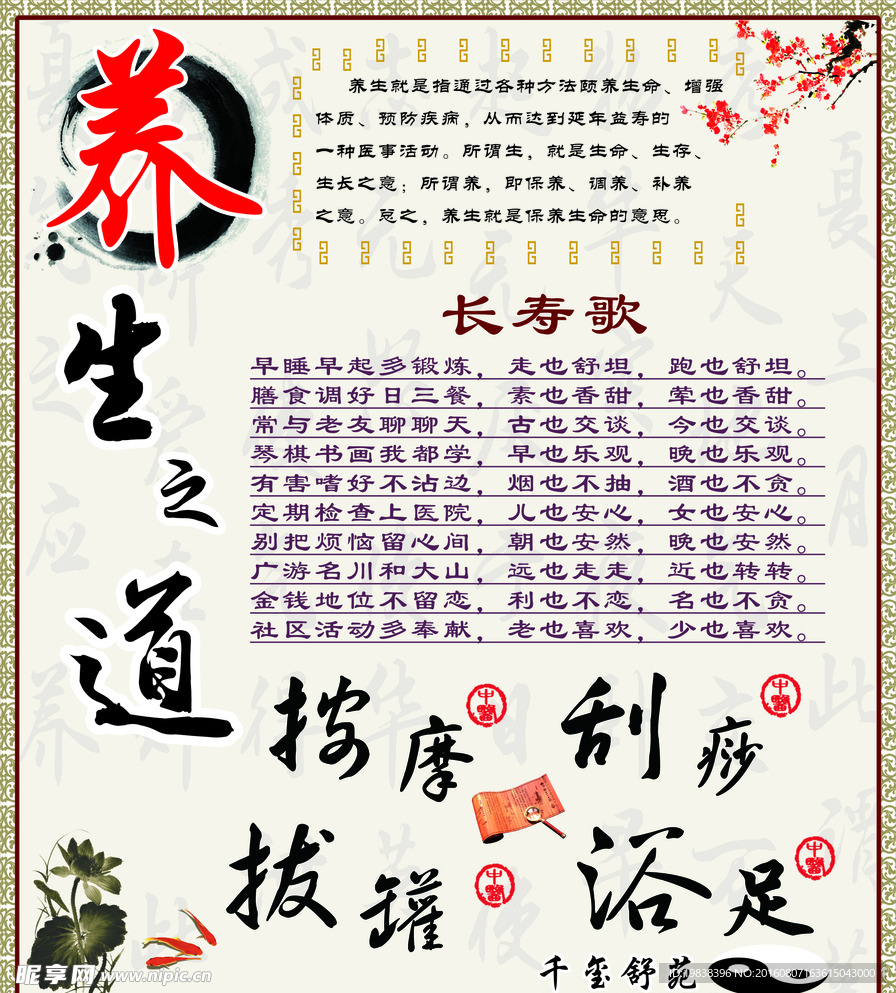 养生之道
养生就是指通过各种方法颐养生命、增强
体质、预防疾病，从而达到延年益寿的
一种医事活动。所谓生，就是生命、生存、
生长之意；所谓养，即保养、调养、补养
之意。总之，养生就是保养生命的意思。
长寿歌
早睡早起多锻炼，走也舒坦，跑也舒坦。
膳食调好日三餐，素也香甜，荤也香甜。
常与老友聊聊天，古也交谈，今也交谈。
琴棋书画我都学，早也乐观，晚也乐观。
有害嗜好不沾边，烟也不抽，酒也不贪。
定期检查上医院，儿也安心，女也安心。
别把烦恼留心间，朝也安然，晚也安然。
广游名川和大山，远也走走，近也转转。
金钱地位不留恋，利也不恋，名也不贪。
社区活动多奉献，老也喜欢，少也喜欢。
按摩
中醫
刮痧
中醫
拔罐
中醫
浴足
中醫
千玺舒苑
昵享网 www.nipic.cn
ID:9838396 NO:20160807163615043000